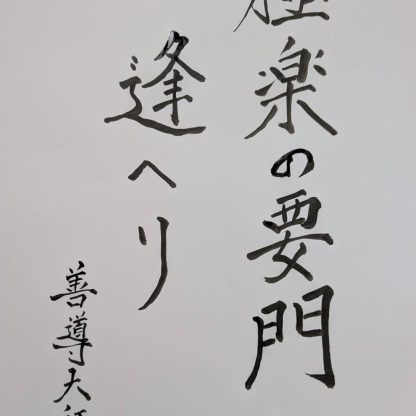 極楽の要門
逢へり
善導大師